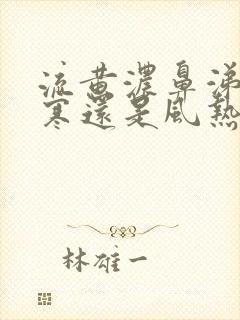 流黃濃鼻涕
寒還是風熱
林雄一